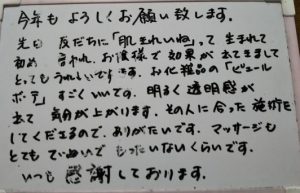 今年もよろしくお願い致します。
先日 友だちに「肌きれいね」って 生まれて
初め 言われ、お蔭様で 効果が出てきまして
とってもうれしいです。お化粧品の「ピュール
ボーテ」すごくいいです。明るく透明感が
出て 気分が上がります。その人に合った施術を
してくださるので、ありがたいです。マッサージも
とても ていねいで もったいないくらいです。
いつも 感謝しております。